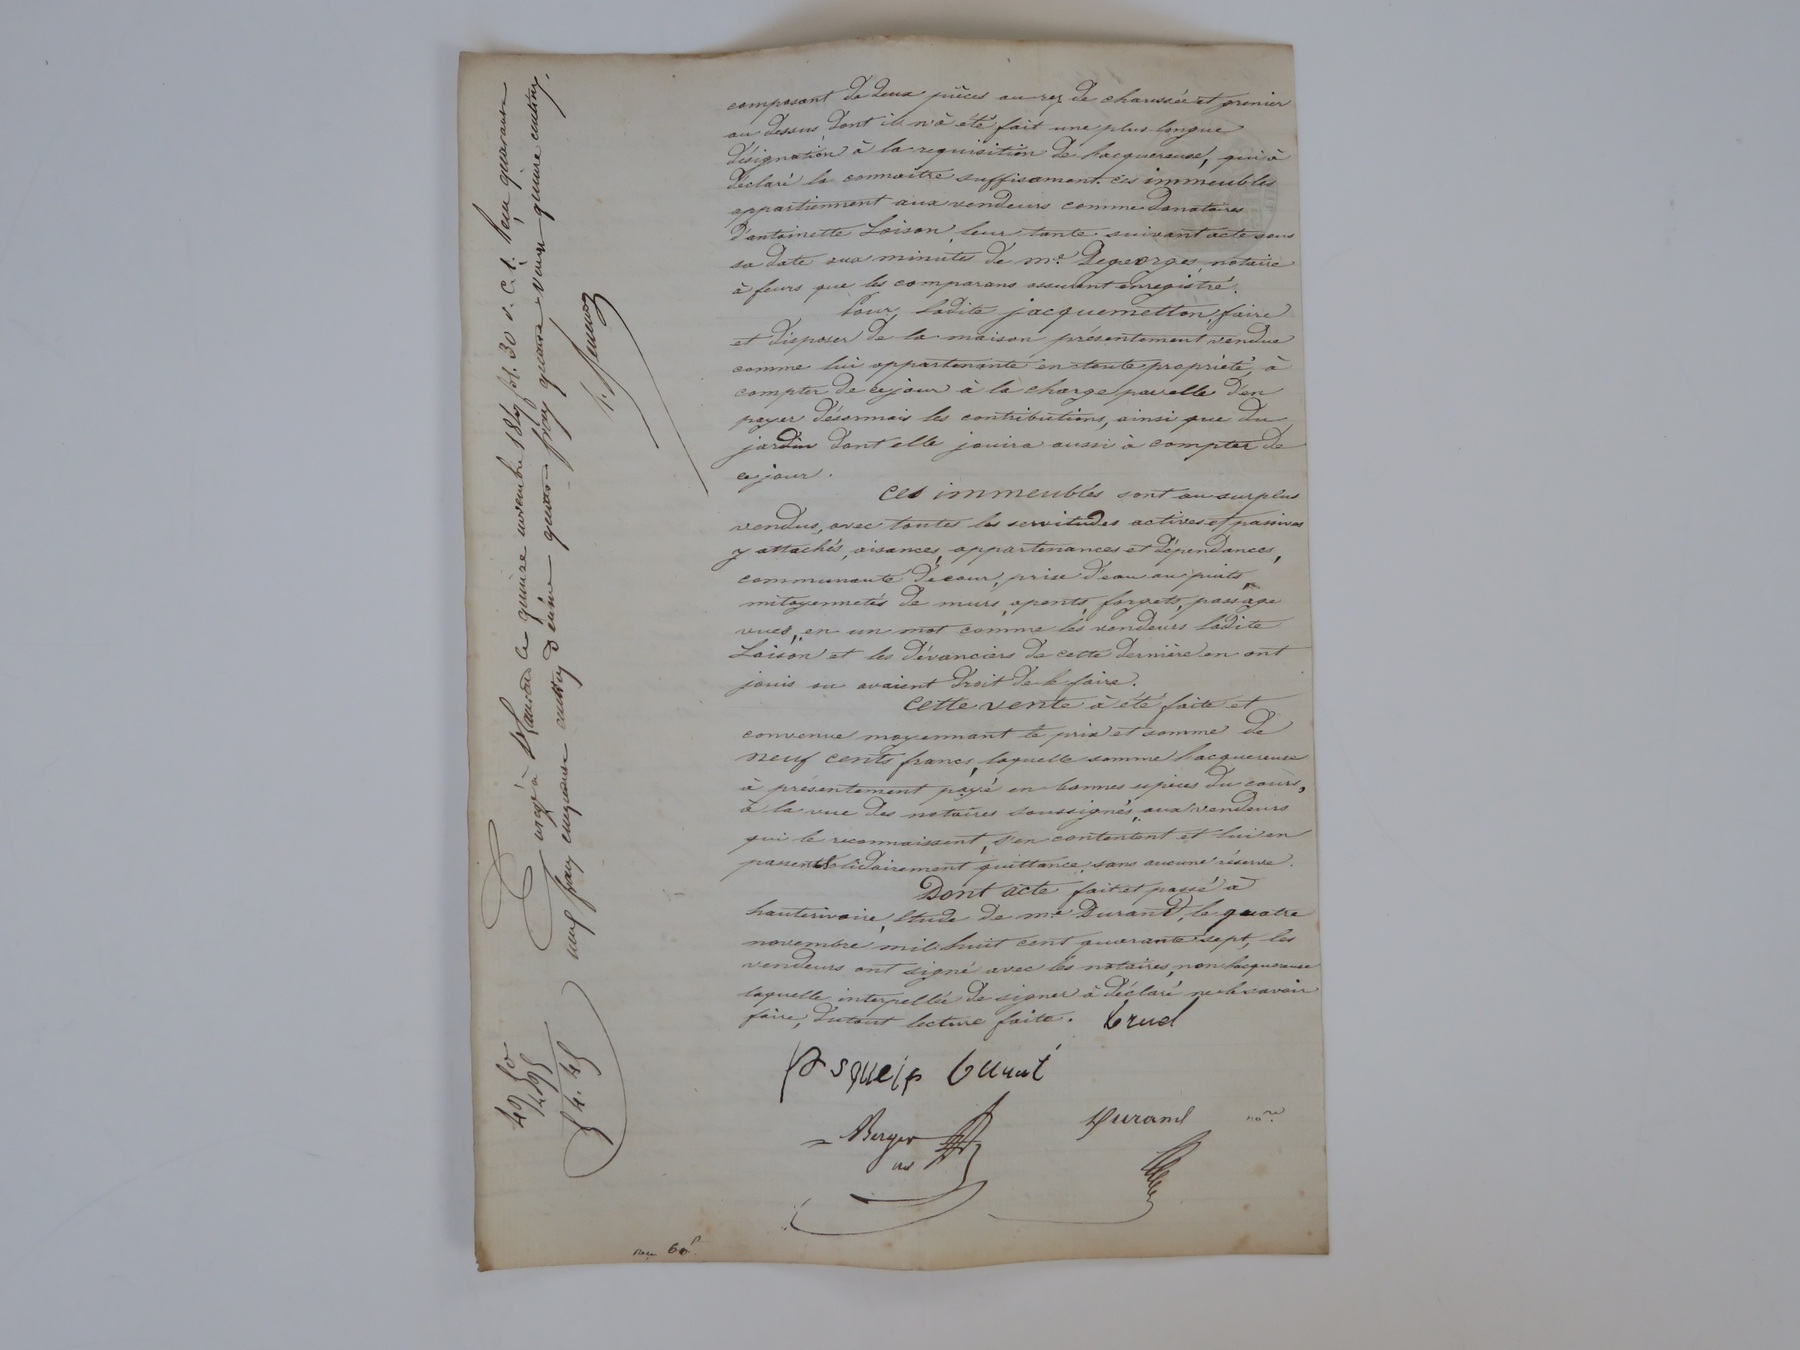 composant de deux pièces au rez de chaussée et grenier
au dessus, dont il n'à été fait une plus longue
désignation à la requisition de lacquereuse, qui à
déclaré la connaitre suffisament. ces immeubles
appartiennent aux vendeurs comme donataires
d'antoinette Loison, leur tante suivant acte sous
sa date aux minutes de me. Degeorges notaire
à feurs que les comparans assurent enregistré.
Pour, ladite jacquemetton, faire
et disposer de la maison présentement vendue
comme lui appartenante en toute propriété, à
compter de ce jour à la charge par elle d'en
payer désormais les contributions, ainsi que du
jardin dont elle jouira aussi à compter de
ce jour.
Ces immeubles sont au surplus
vendus, avec toutes les servitudes actives et passives
y attachés, aisances, appartenances et dépendances,
communauté de cour, prise d'eau au puits,
mitoyennetés de murs, apents, forgets, passage
vues, en un mot comme les vendeurs ladite
Loison et les dévanciers de cette dernière en ont
jouis ou avaient droit de le faire.
Cette vente à été faite et
convenue moyennant le prix et somme de
neuf cents francs, laquelle somme lacquereuse
à présentement payé en bonnes espèces du cours,
à la vue des notaires soussignés, aux vendeurs
qui le reconnaissent, s'en contentent et lui en
passent solidairement quittance, sans aucune réserve.
Dont acte fait et passé à
hauterivoire, Etude de me Durand, le quatre
novembre mil huit cent quarante sept, les
vendeurs ont signé avec les notaires, non lacquereuse
laquelle interpellée de signer à déclaré ne le savoir
faire, dutout lecture faite. Crud
Berger
Durand nore.
le quinze novembre 1847 fol. 30 v. c. 1. Reçu quarante
neuf francs cinquante centimes
49 50
4 95
54. 45